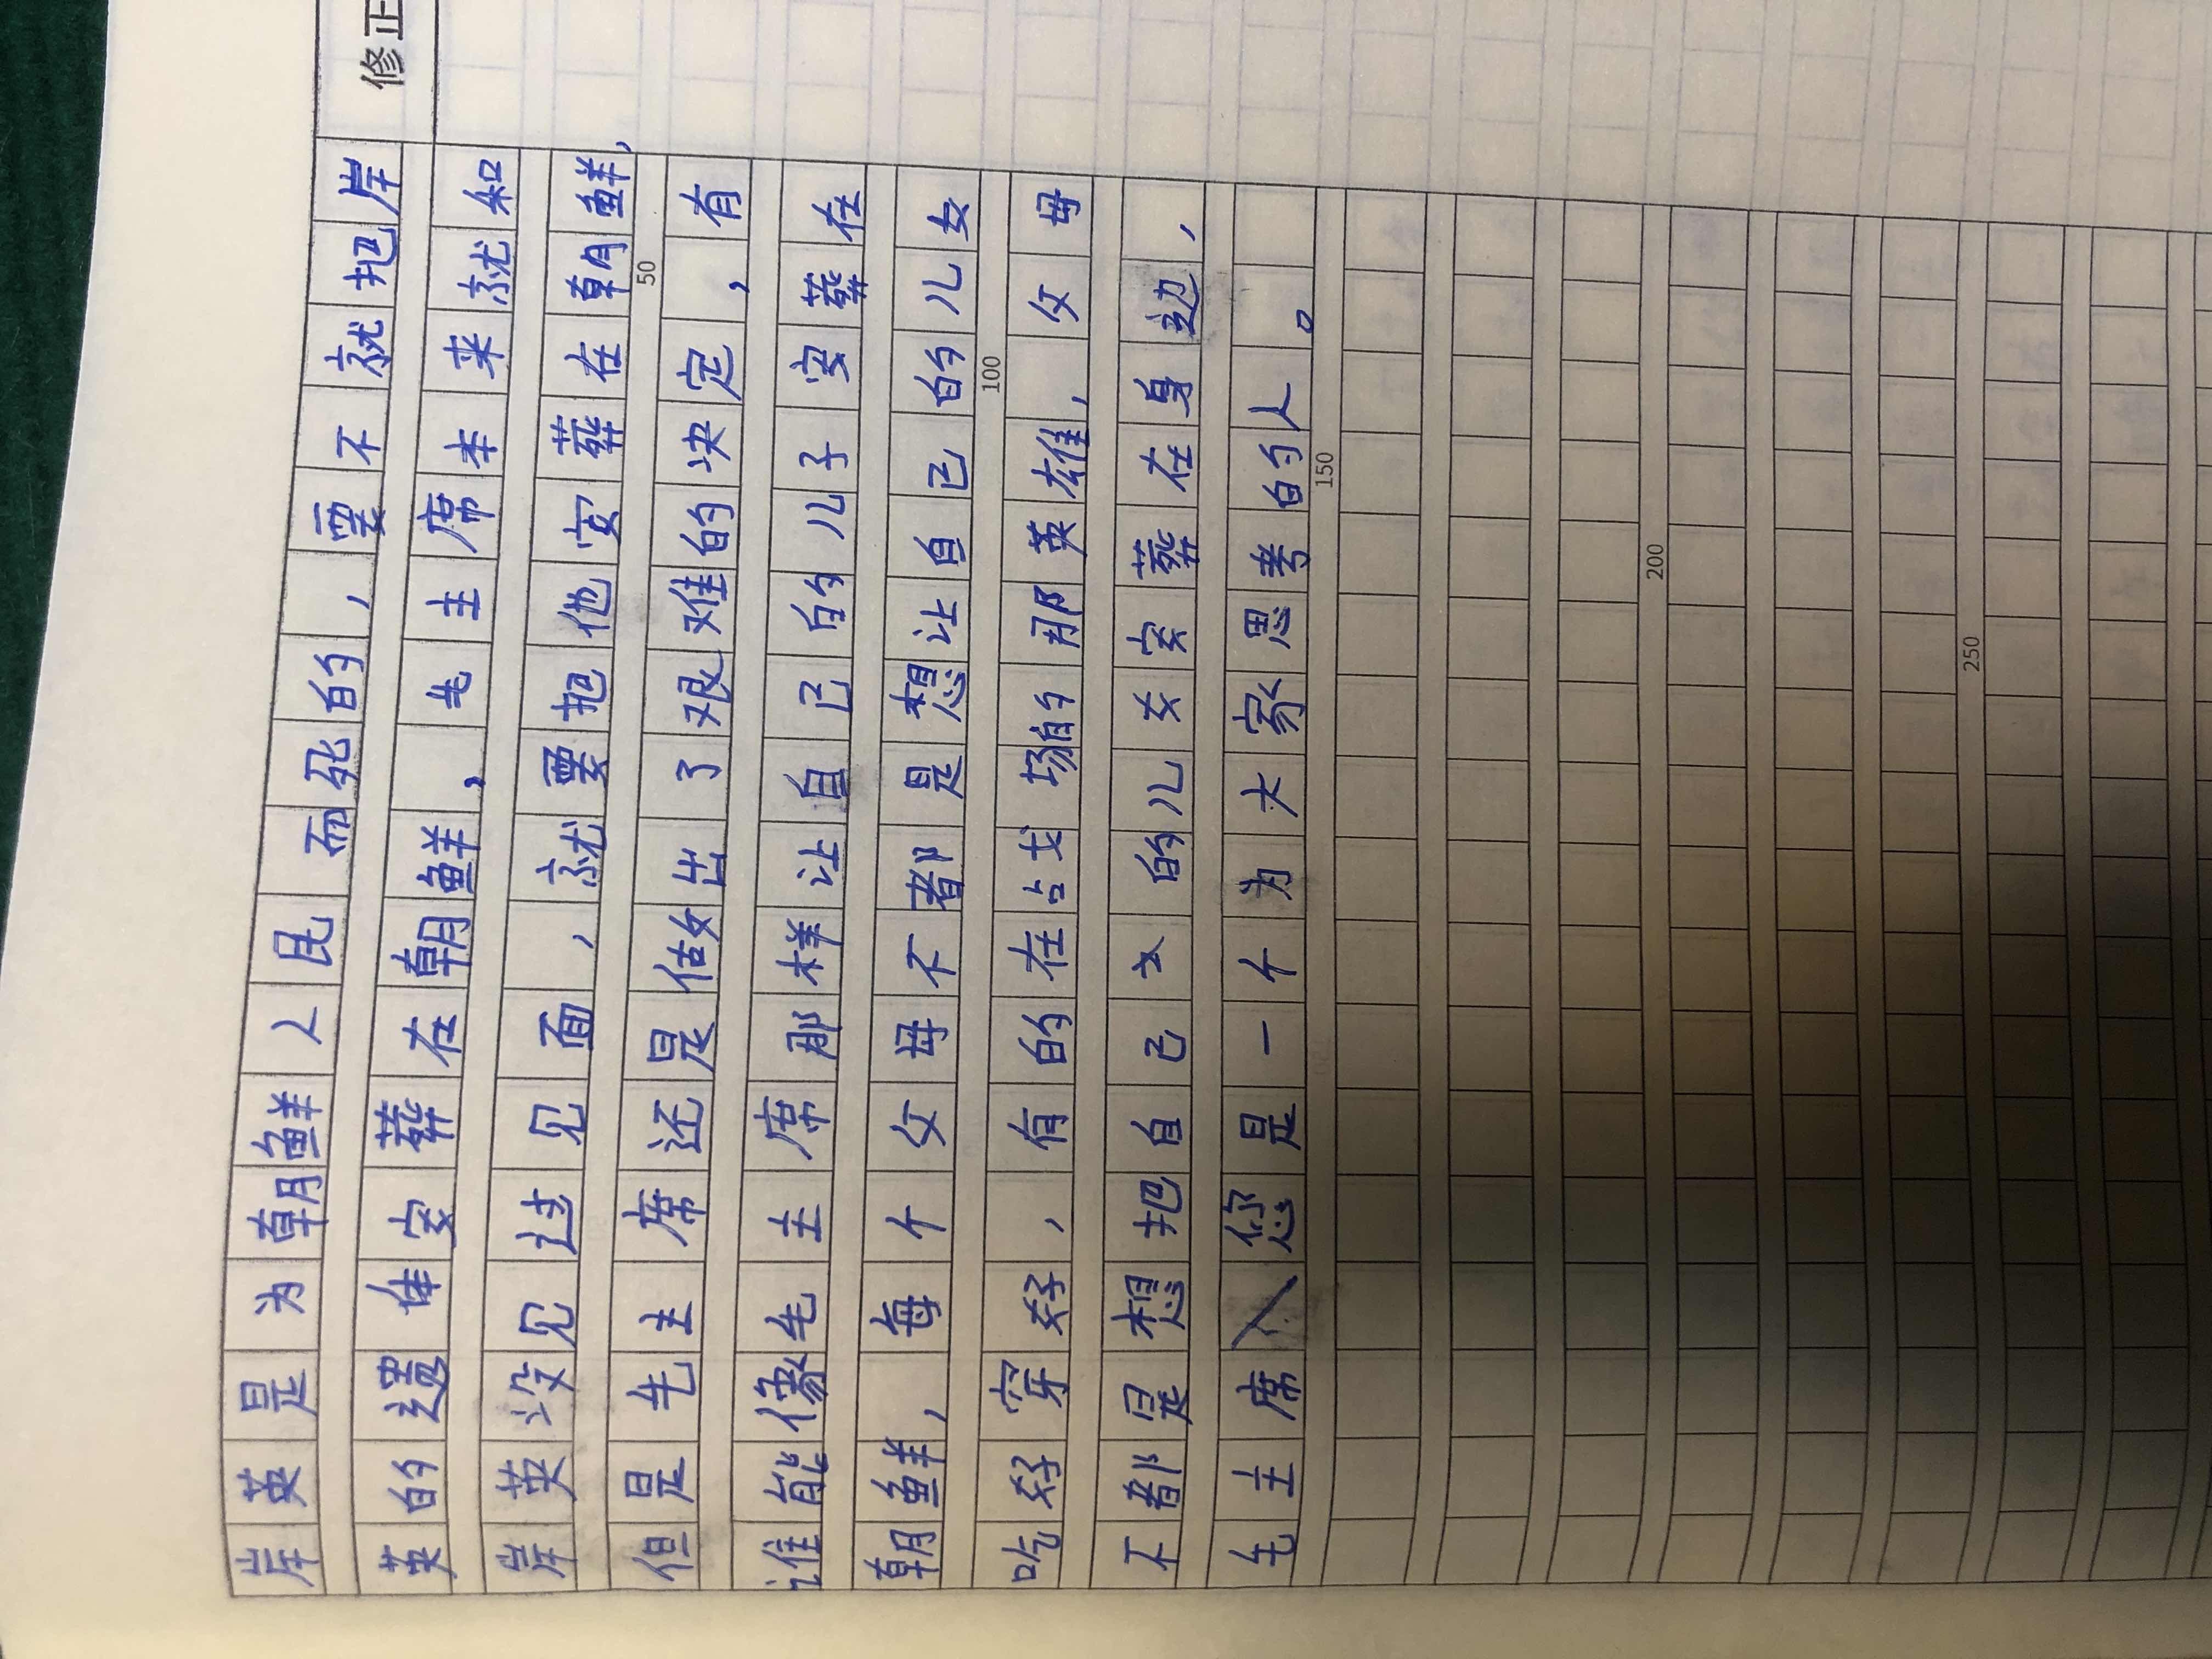 修正
岸英是为朝鲜人民而死的,要不就把岸
英的遗体安葬在朝鲜,毛主席本来就和
岸英没见过见面,就要把他安葬在朝鲜,
50
但是毛主席还是做出了艰难的决定,有
谁能像毛主席那样让自己的儿子安葬在
朝鲜,每个父母不都是想让自己的儿女
100
吃好穿好,有的在战场的那英雄,父母
不都是想把自己的儿女安葬在身边,
毛主席您是一个为大家思考的人。
150
200
250